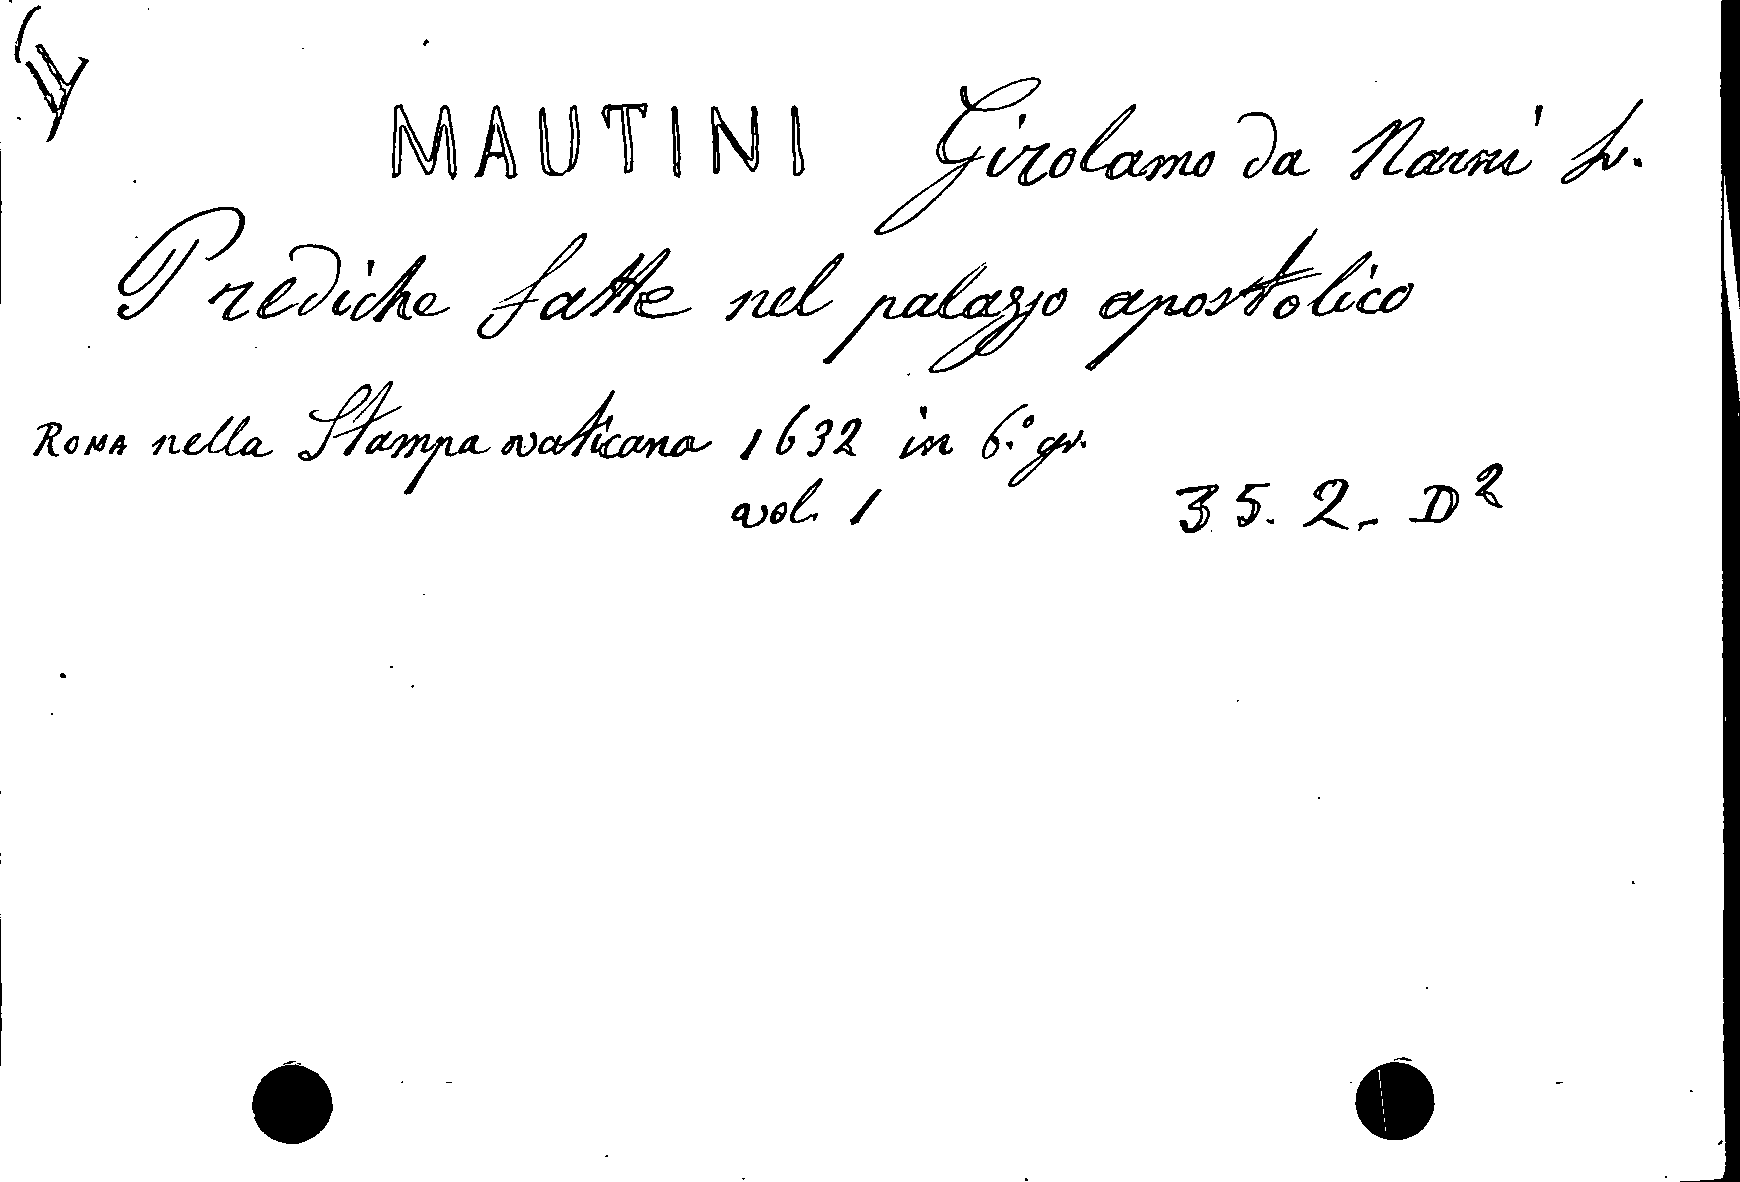 MAUTINI Girolamo da Narni fr.
Prediche fatte nel palazzo apostolico
ROMA nella Stampa vaticana 1632 in 6.° gr.
vol. 1 35. 2. D²